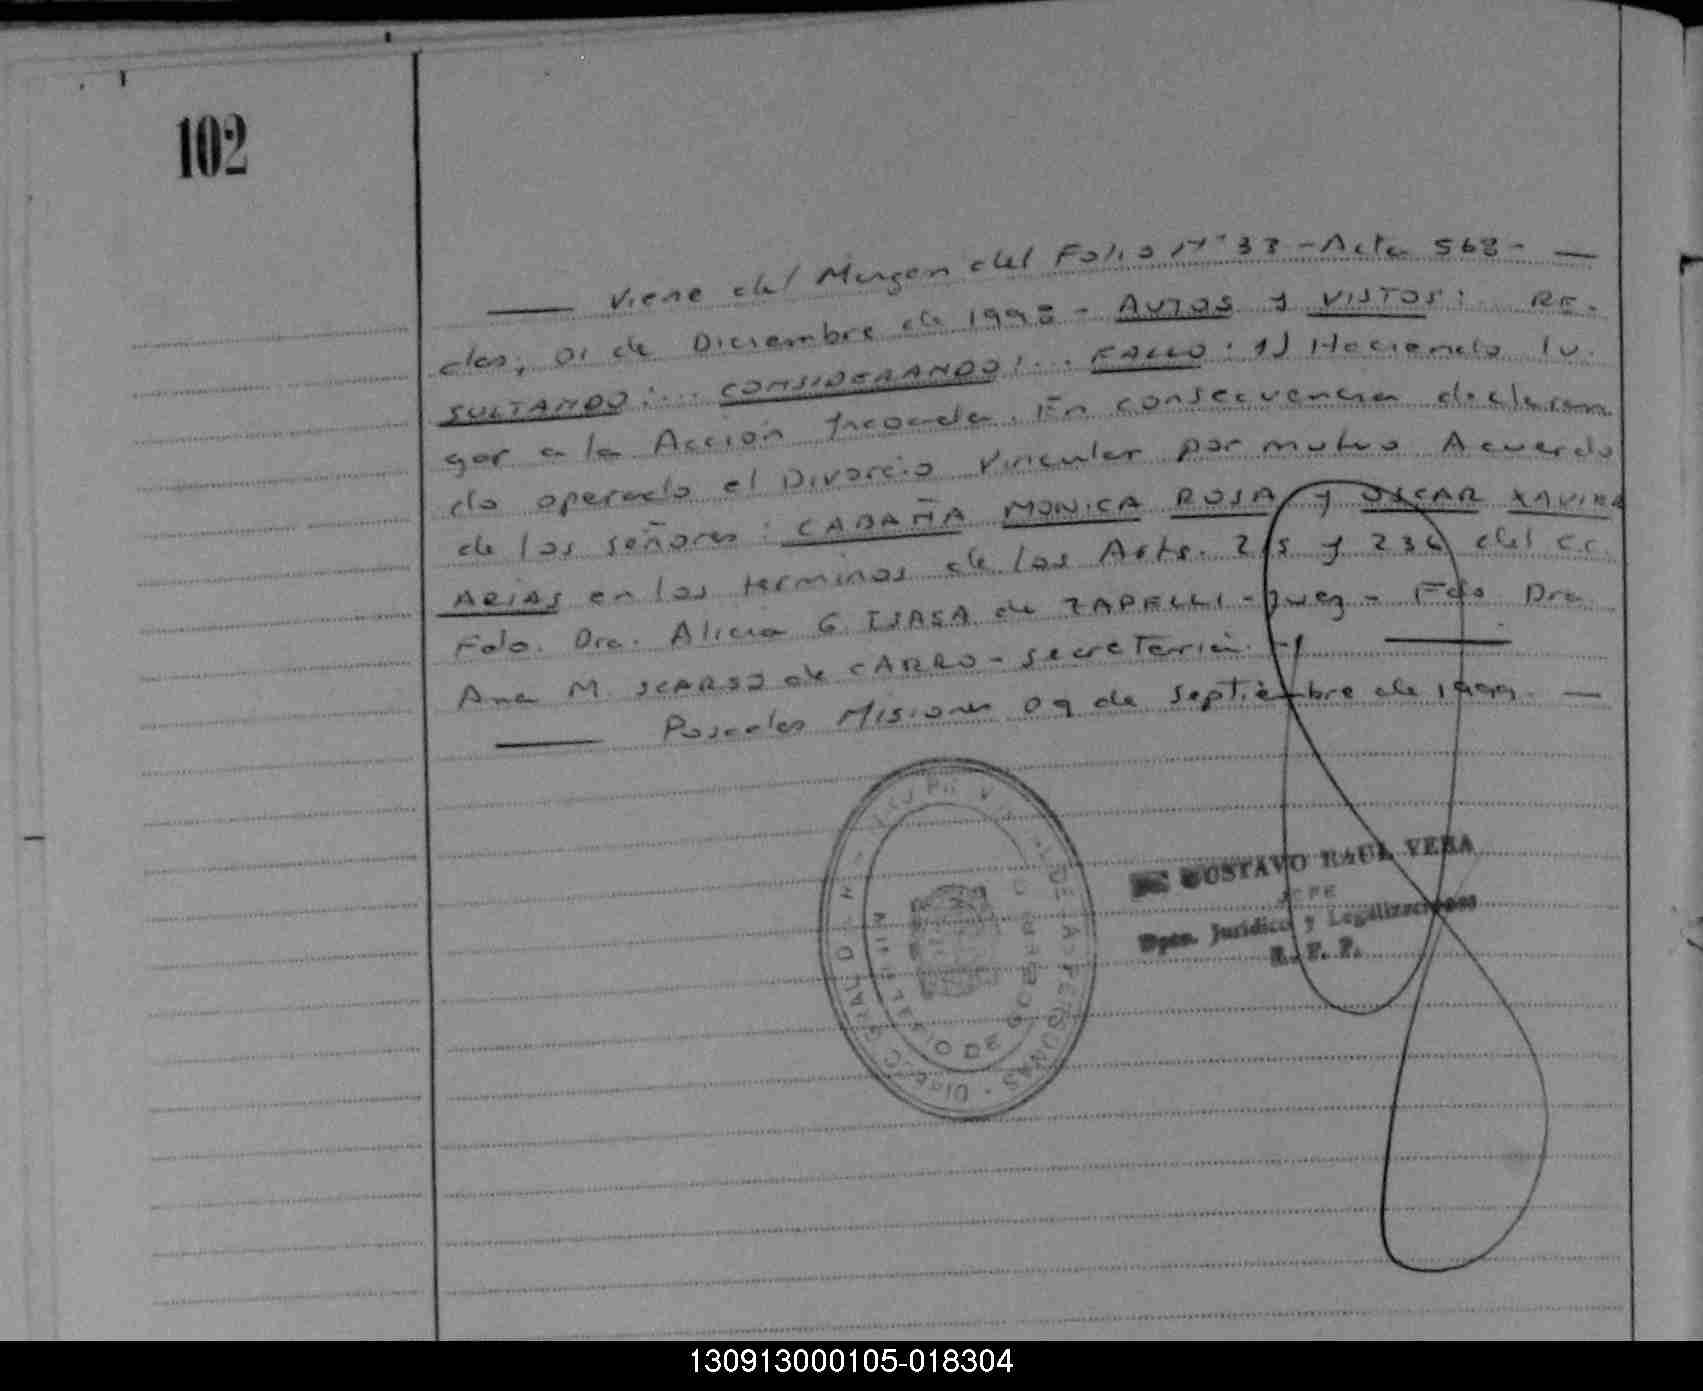 102
— Viene del Margen del Folio Nº 33 - Acta 568 - —
das, 01 de Diciembre de 1998 - AUTOS y VISTOS: RE-
SULTANDO:... CONSIDERANDO:... FALLO: 1) Haciendo lu-
gar a la Acción Incoada. En consecuencia declaran
do operado el Divorcio Vincular por mutuo Acuerdo
de los señores: CABAÑA MONICA ROSA y OSCAR XAVIER
ARIAS en los terminos de los Arts. 215 y 236 del C.C.
Fdo. Dra. Alicia G ISASA de ZAPELLI - Juez - Fdo Dra
Ana M. SCARSO de CARRO - secreTaria. -
— Posadas Misiones 09 de Septiembre de 1999. —
GUSTAVO RAUL VERA
JEFE
Dpto. Jurídico y Legalizaciones
R. P. P.
130913000105-018304